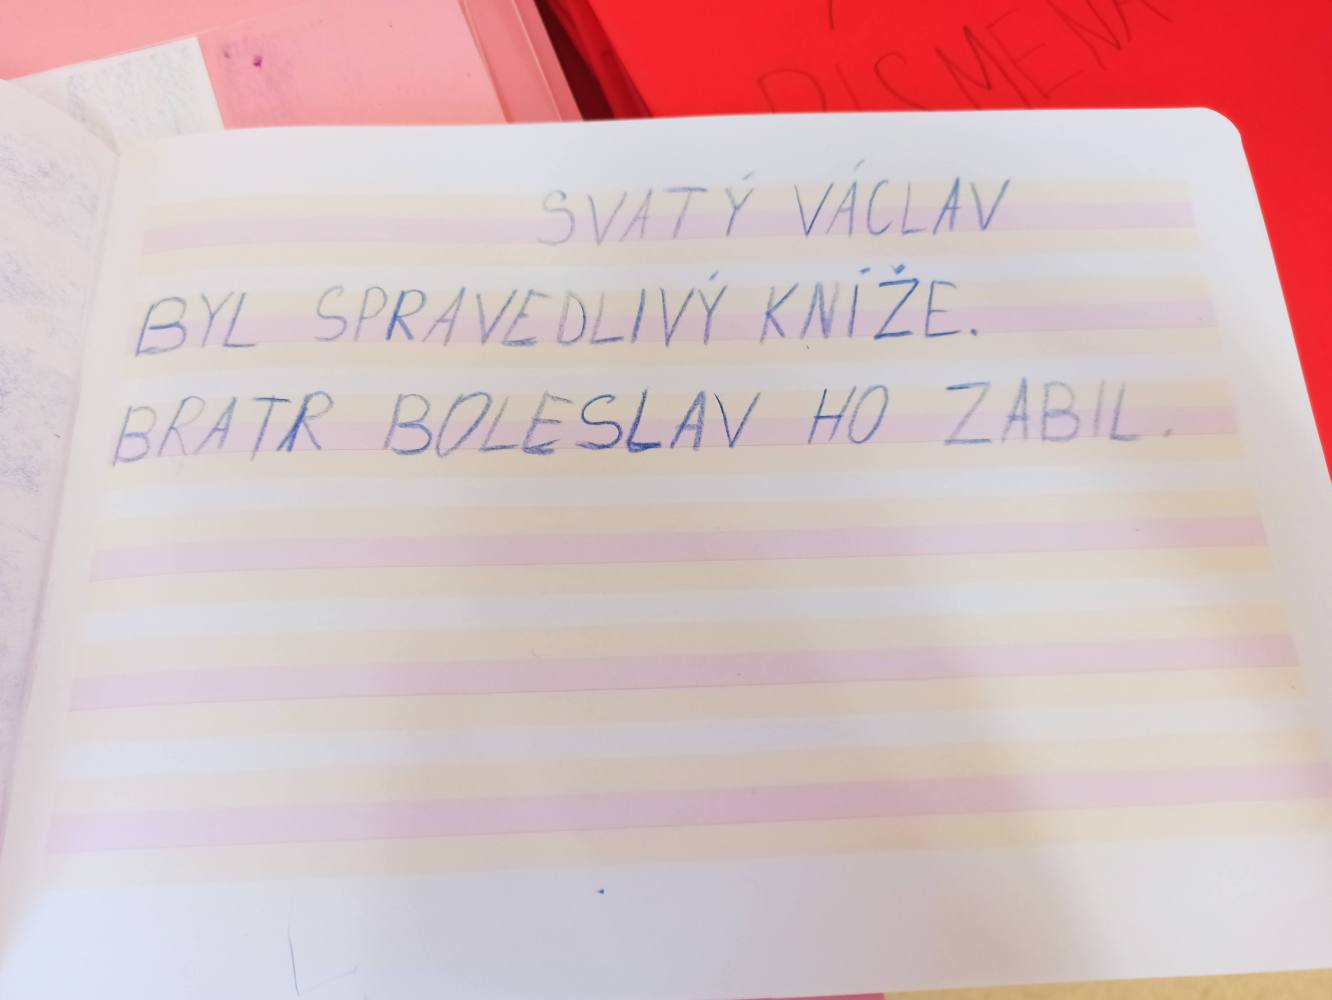 PISMENA
SVATÝ VÁCLAV
BYL SPRAVEDLIVÝ KNÍŽE.
BRATR BOLESLAV HO ZABIL.